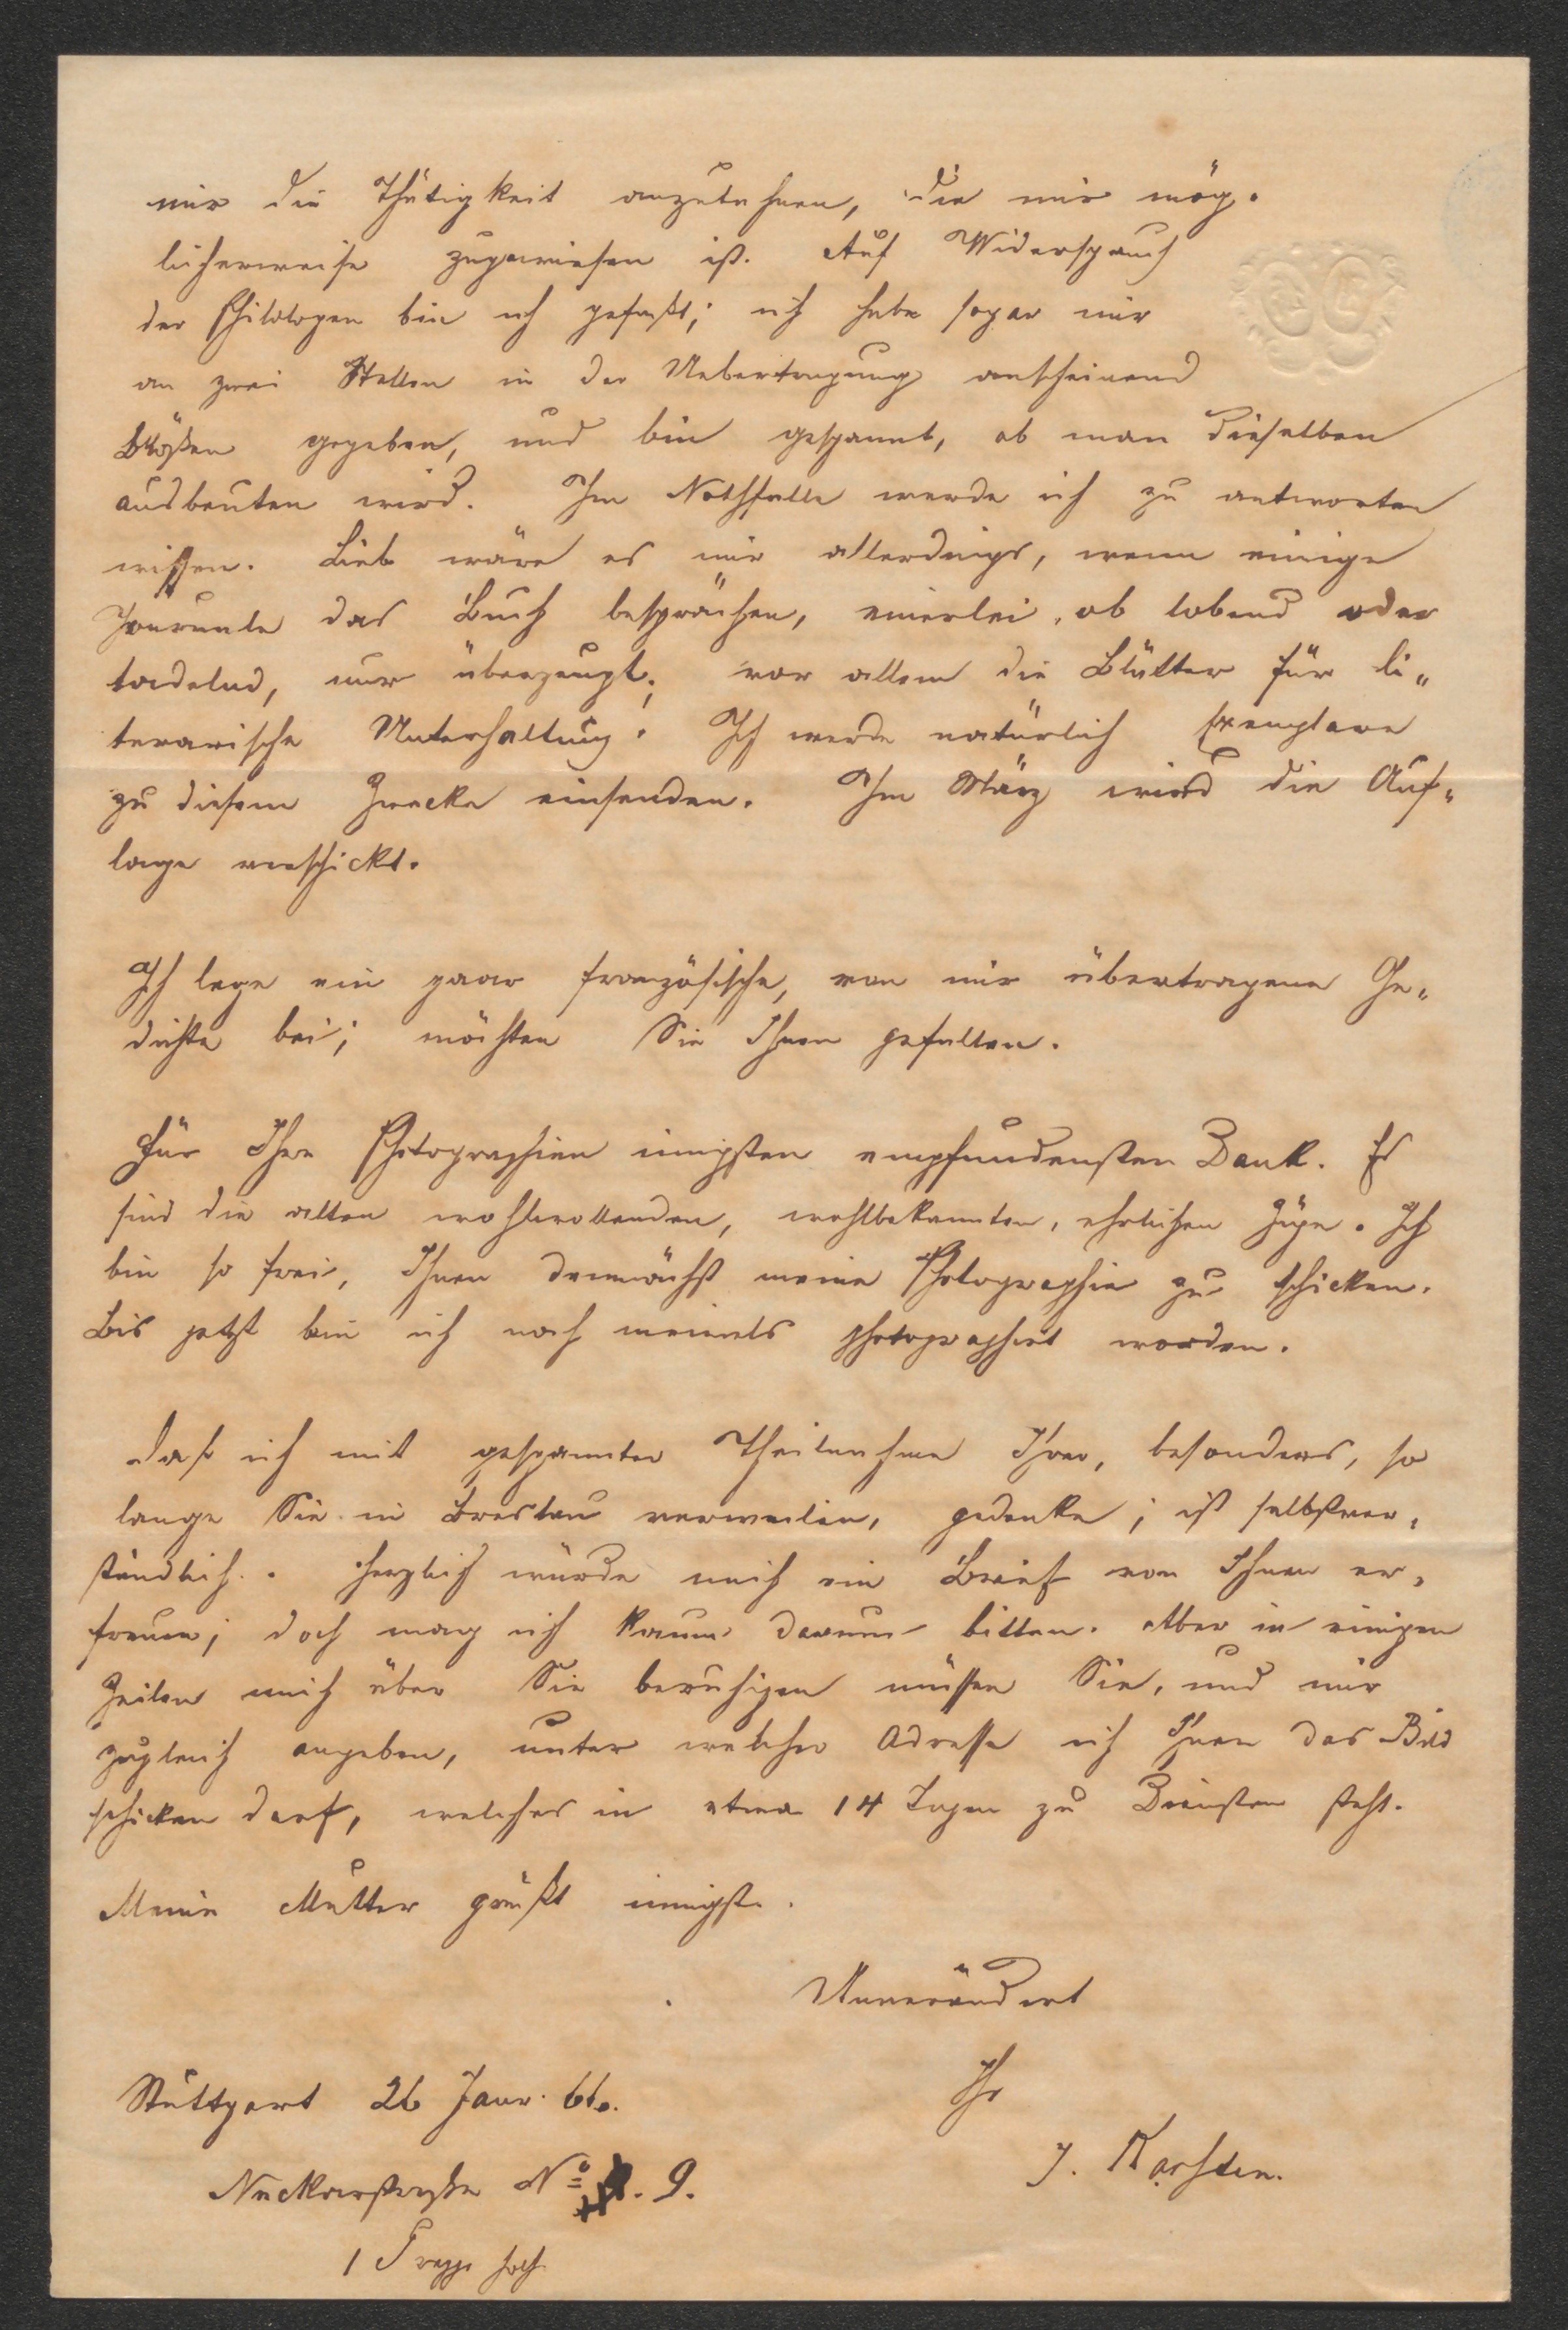 mir die Thätigkeit anzulehnen, die mir mög-
licherweise zugewiesen ist. Auf Widerspruch
der Philologen bin ich gefaßt; ich habe sogar mir
an zwei Stellen in der Uebertragung anscheinend
Blößen gegeben, und bin gespannt, ob man dieselben
ausbeuten wird. Im Nothfalle werde ich zu antworten
wissen. Lieb wäre es mir allerdings, wenn einige
Journale das Buch besprächen, einerlei, ob lobend oder
tadelnd, nur überzeugt; vor allem die Blätter für li-
terarische Unterhaltung. Ich werde natürlich Exemplare
zu diesem Zwecke einsenden. Im März wird die Auf-
lage verschickt.
Ich lege ein paar französische, von mir übertragene Ge-
dichte bei; möchten Sie Ihnen gefallen.
Für Ihre Photographien innigsten empfundensten Dank. Es
sind die alten wohlwollenden, wohlbekannten, ehrlichen Züge. Ich
bin so frei, Ihnen demnächst meine Photographie zu schicken.
Bis jetzt bin ich noch niemals photographirt worden.
Daß ich mit gespannter Theilnahme Ihrer, besonders, so
lange Sie in Breslau verweilen, gedenke, ist selbstver-
ständlich. Herzlich würde mich ein Brief von Ihnen er-
freuen; doch mag ich kaum darum bitten. Aber in einigen
Zeilen mich über Sie beruhigen müssen Sie, und mir
zugleich angeben, unter welcher Adresse ich Ihnen das Bild
schicken darf, welches in etwa 14 Tagen zu Diensten steht.
Meine Mutter grüßt innigst.
Unverändert
Ihr
Stuttgart 26 Janr. 66.
J. Karsten.
Neckarstraße No 9.
1 Treppe hoch